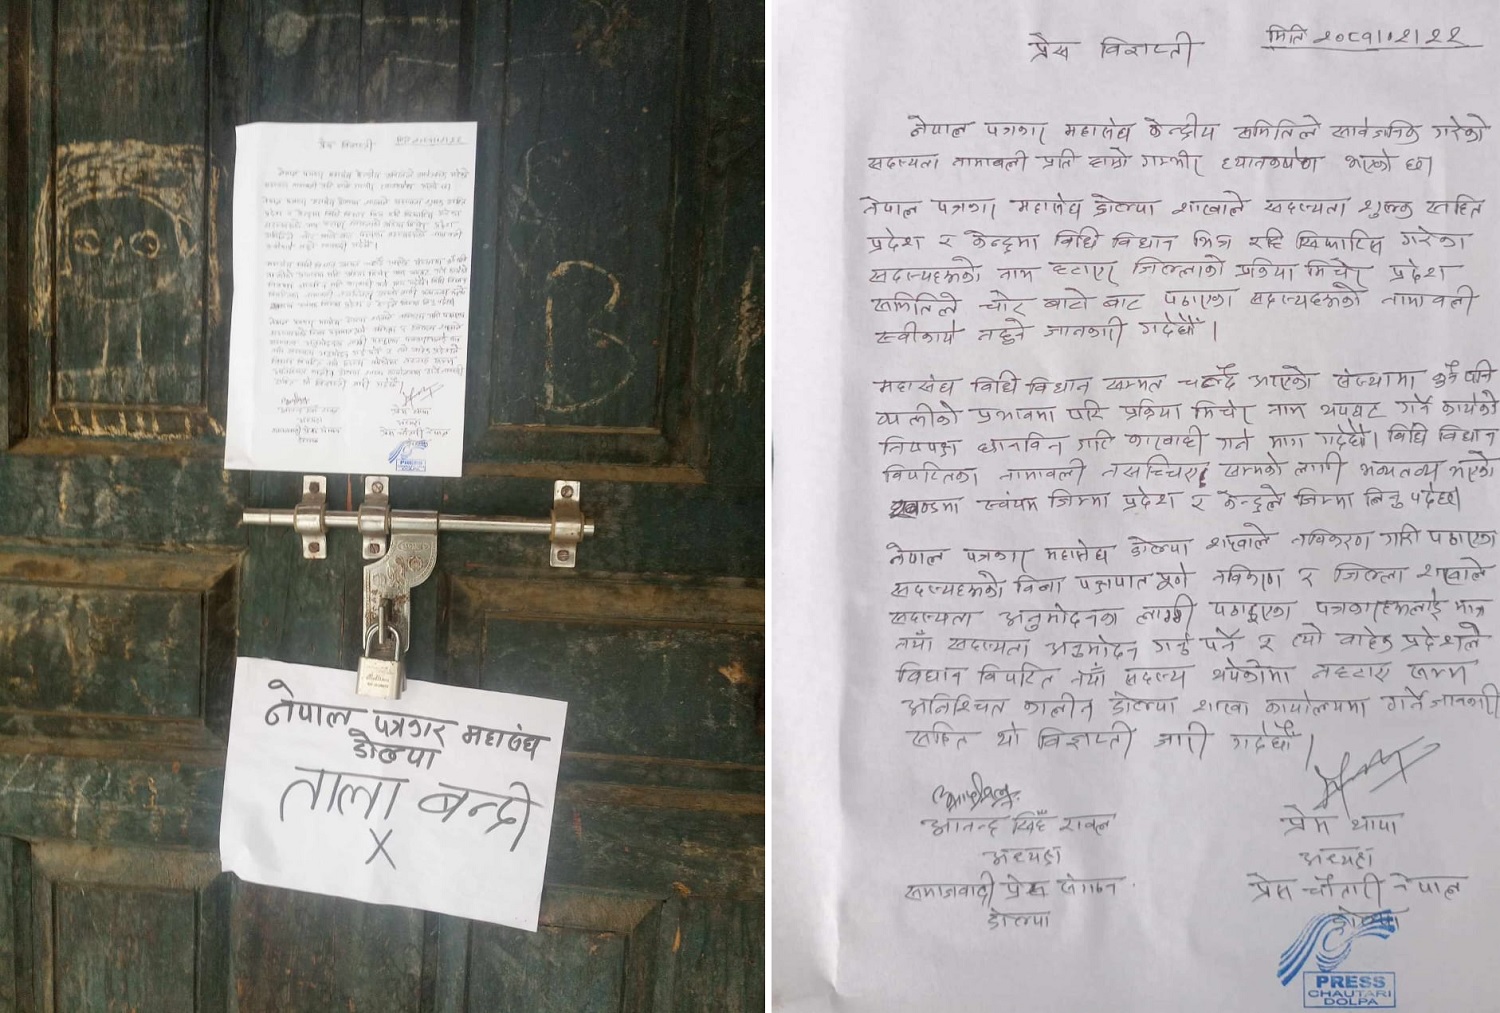 प्रेस विज्ञप्ती
मिति २०८१।२।२२
नेपाल पत्रकार महासंघ केन्द्रीय समितिले सार्वजनिक गरेको
सदस्यता नामावली प्रति हाम्रो गम्भीर ध्यानकर्षण भएको छ।
नेपाल पत्रकार महासंघ डोल्पा शाखाले सदस्यता शुल्क सहित
प्रदेश र केन्द्रमा विधि विधान भित्र रहि सिफारिस गरेका
सदस्यहरुको नाम हटाएर जिल्लाको प्रक्रिया मिचेर प्रदेश
समितिले चोर बाटो बाट पठाएका सदस्यहरुको नामावली
स्वीकार्य नहुने जानकारी गर्दछौँ।
महासंघ विधि विधान सम्मत चल्दै आएको संस्थामा कुनै पनि
व्यक्तीको प्रभावमा परि प्रक्रिया मिचेर नाम थपघट गर्ने कार्यको
निष्पक्ष छानविन गरि कारवाही गर्न माग गर्दछौ। विधि विधान
विपरितका नामावली नसच्चिए सम्मको लागी
स्वंयम जिम्मा प्रदेश र केन्द्रले जिम्मा लिनु पर्दछ।
नेपाल पत्रकार महासंघ डोल्पा शाखाले नविकरण गरी पठाएका
सदस्यहरुको विना पक्षपात पूर्ण नविकरण र जिल्ला शाखाले
सदस्यता अनुमोदनका लागी पठाइएका पत्रकारहरुलाई मात्र
नयाँ सदस्यता अनुमोदन गर्नु पर्ने र त्यो बाहेक प्रदेशले
विधान विपरित नयाँ सदस्य थपेकोमा नहटाए सम्म
अनिश्चित कालीन डोल्पा शाखा कार्यालयमा गर्ने जानकारी
सहित यो विज्ञप्ती जारी गर्दछौँ।
आनन्द सिंह रावल
अध्यक्ष
समाजवादी प्रेस संगठन
डोल्पा
प्रेम थापा
अध्यक्ष
प्रेस चौतारी नेपाल
डोल्पा
PRESS
CHAUTARI
DOLPA
नेपाल पत्रकार महासंघ
डोल्पा
ताला बन्दी
X
B